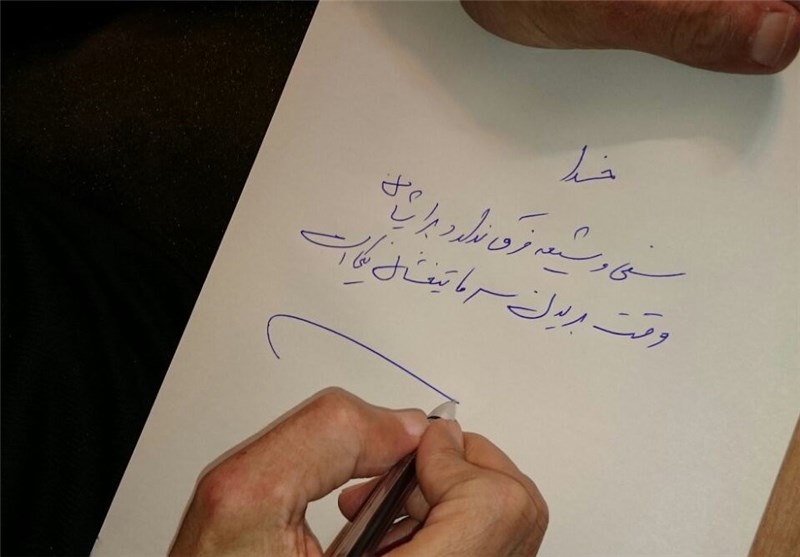 خدا
سنی و شیعه فرقی ندارد برایشان
وقت بریدن سر ما تیغشان یکی است